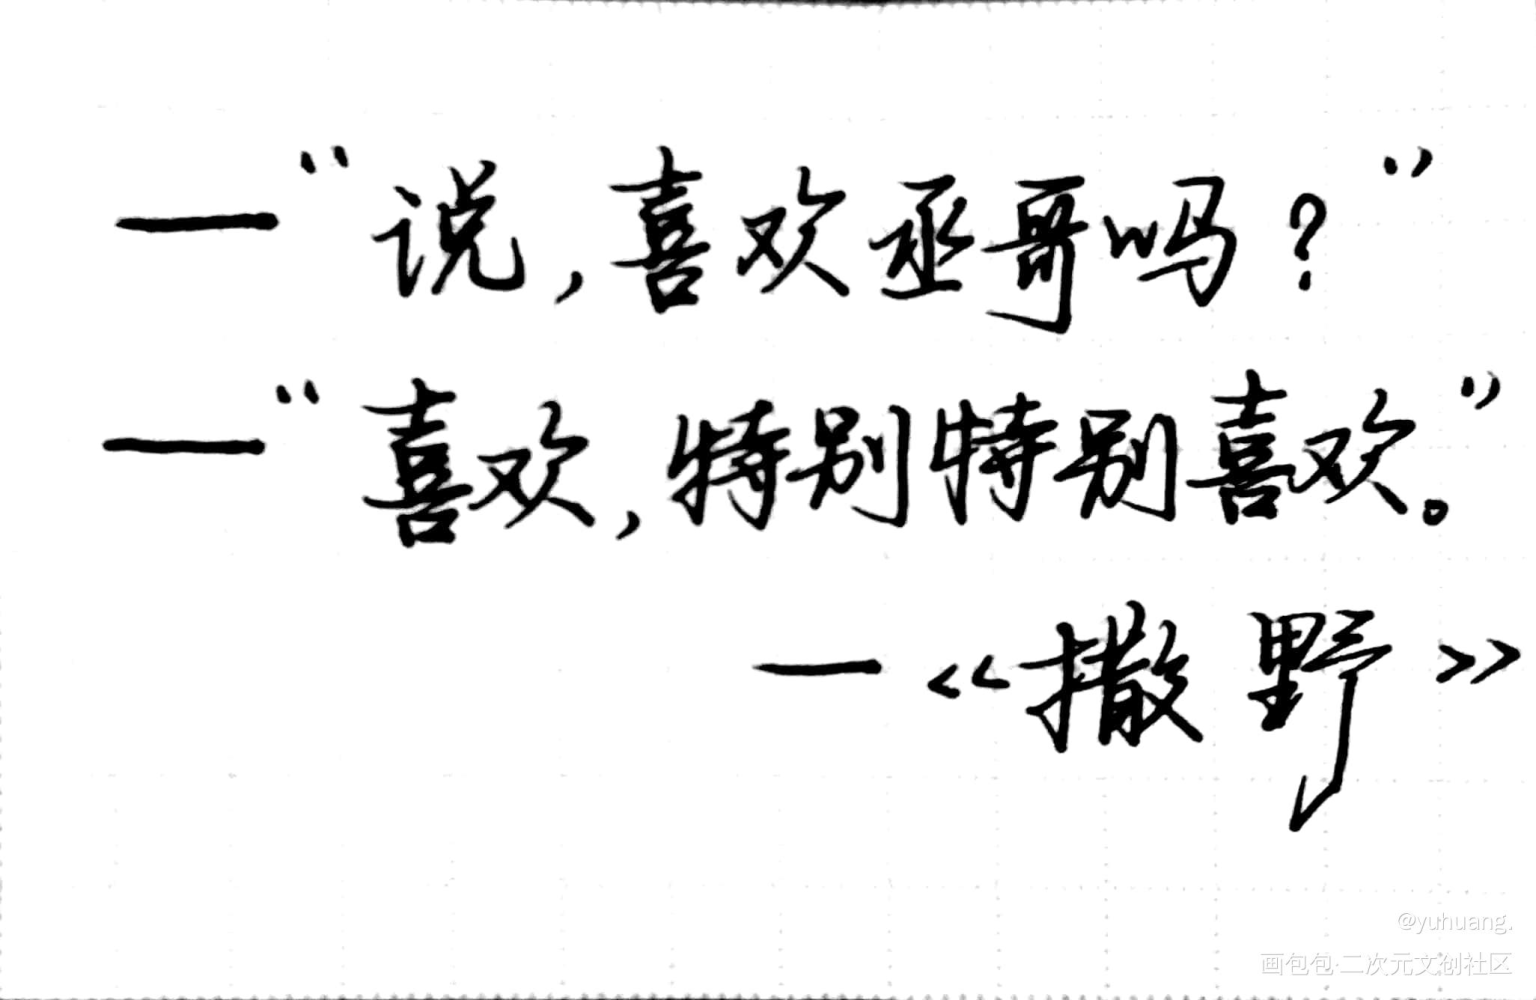 —“说,喜欢丞哥吗?”
—“喜欢,特别特别喜欢。”
—《撒野》
@yuhuang.
画包包·二次元文创社区